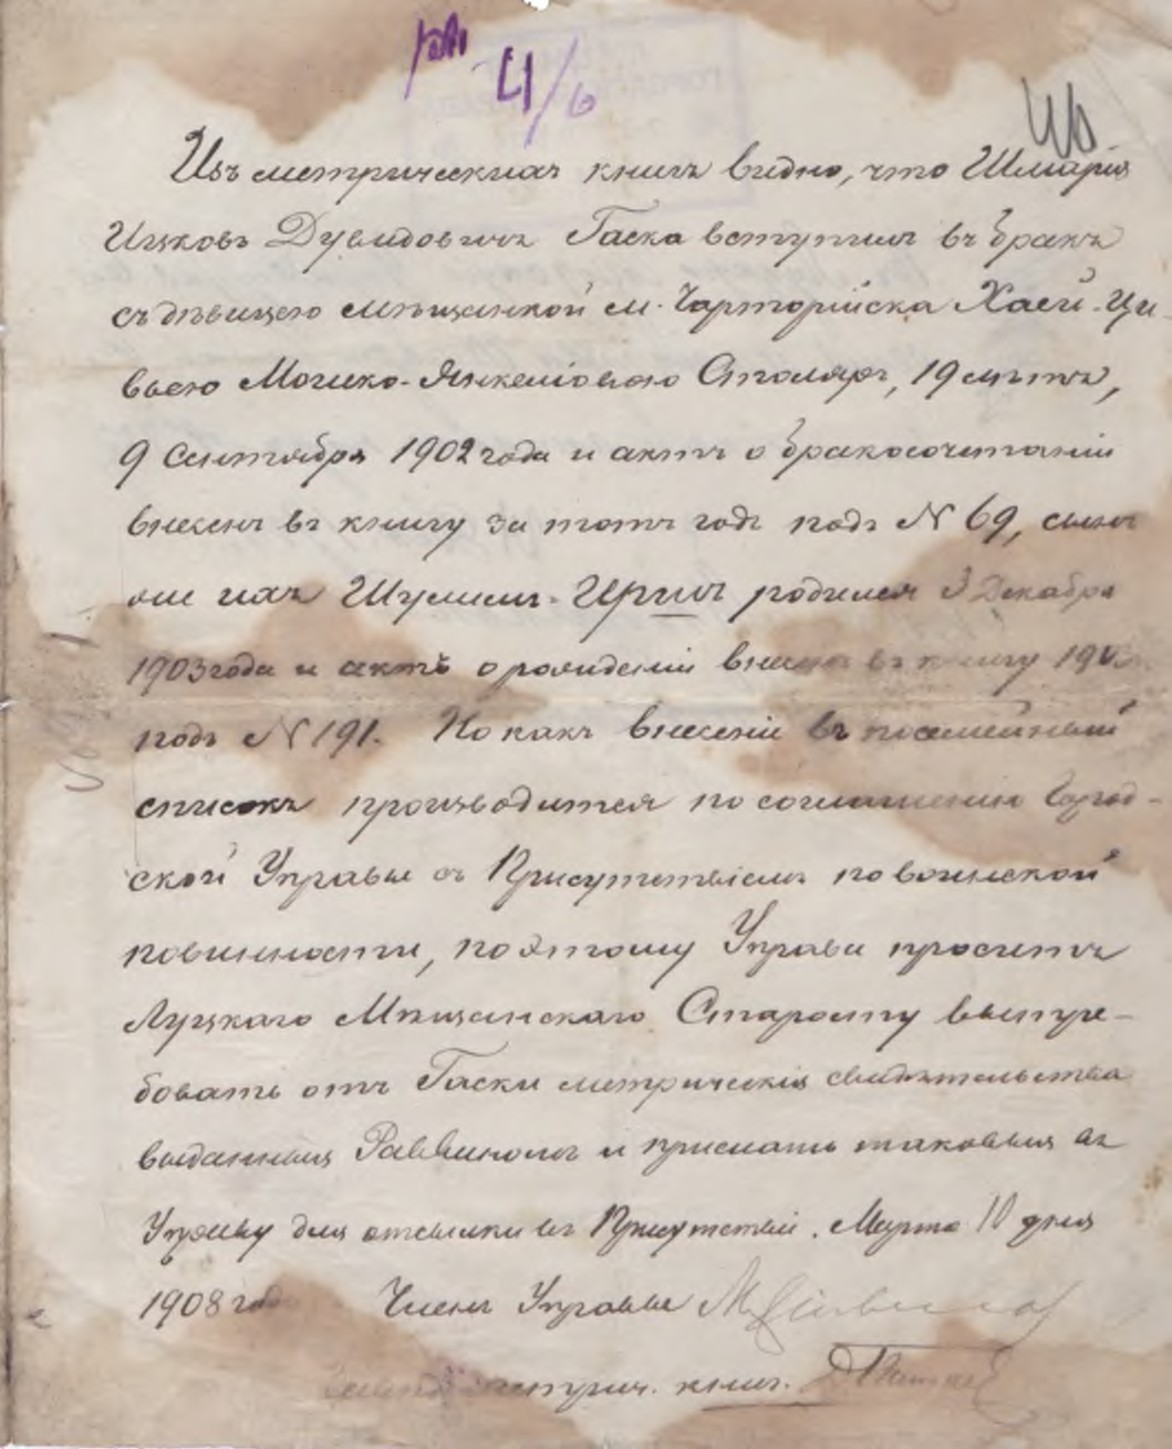 41/6
Изъ метрическихъ книгъ видно, что Шмарія
Ицковъ Дувидовичъ Гаска вступилъ въ бракъ
съ дѣвицею мѣщанкой м. Чарторійска Хаей-Ци-
вьею Мошко-Янкеліовою Столяръ, 19 лѣтъ,
9 Сентября 1902 года и актъ о бракосочетаніи
внесенъ въ книгу за тотъ годъ подъ № 69, сынъ
же ихъ Шулимъ-Иршъ родился 3 Декабря
1903 года и актъ о рожденіи внесенъ въ книгу 1903
подъ № 191. Но какъ внесеніе въ посемейный
списокъ производится по соглашенію Город-
ской Управы съ Присутствіемъ по воинской
повинности, поэтому Управа проситъ
Луцкаго Мѣщанскаго Старосту вытре-
бовать отъ Гаски метрическія свидѣтельства
выданныя Раввиномъ и прислать таковыя въ
Управу для отсылки въ Присутствіе. Марта 10 дня
1908 года Членъ Управы
метрич. книг.